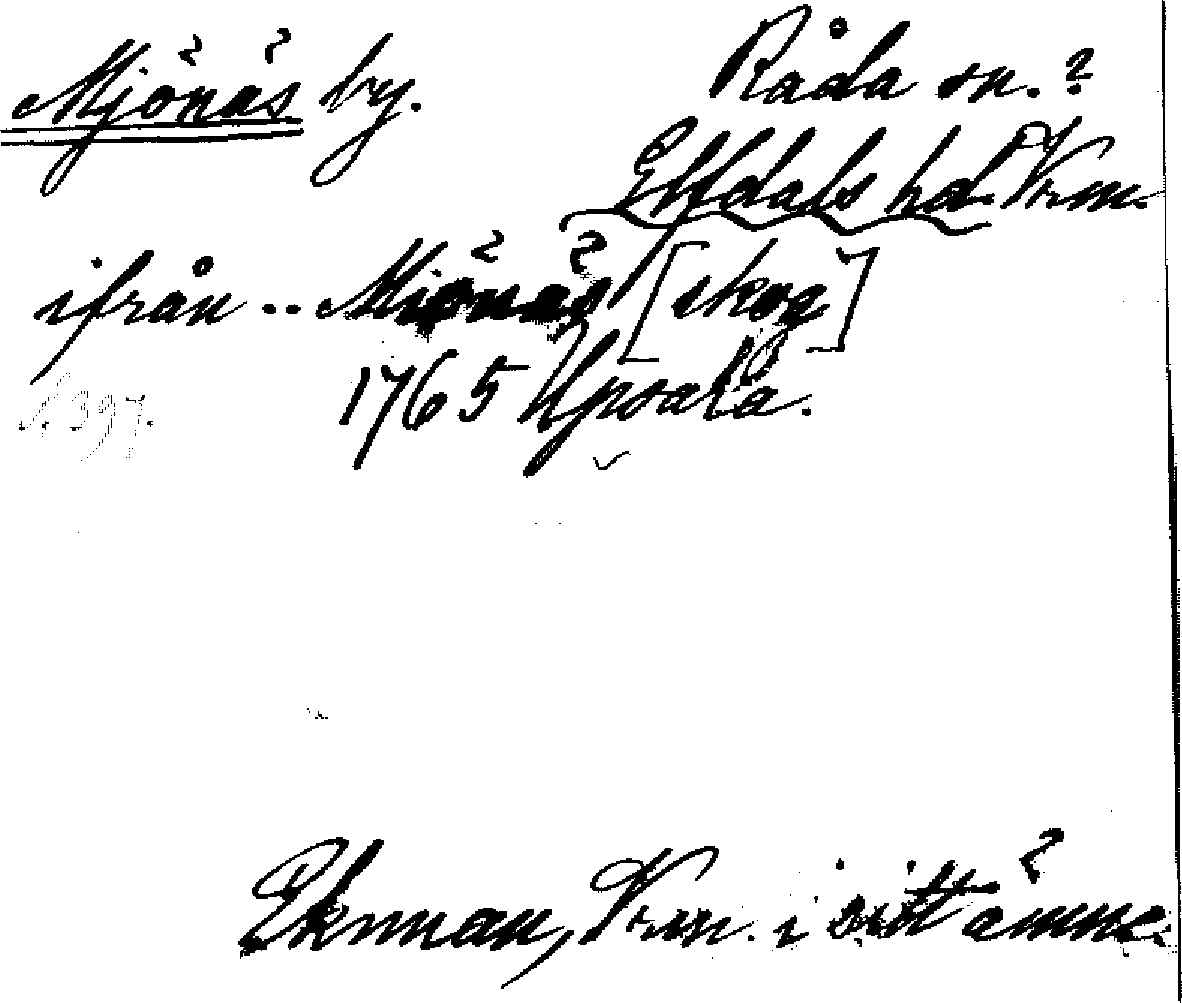 Mjönäs by. Råda sn.?
Elfdals hd. Vrm.
ifrån .. Miönäs [skog]
1765 Upsala.
s. 397.
Ekman, Vrm. i sitt ämne.